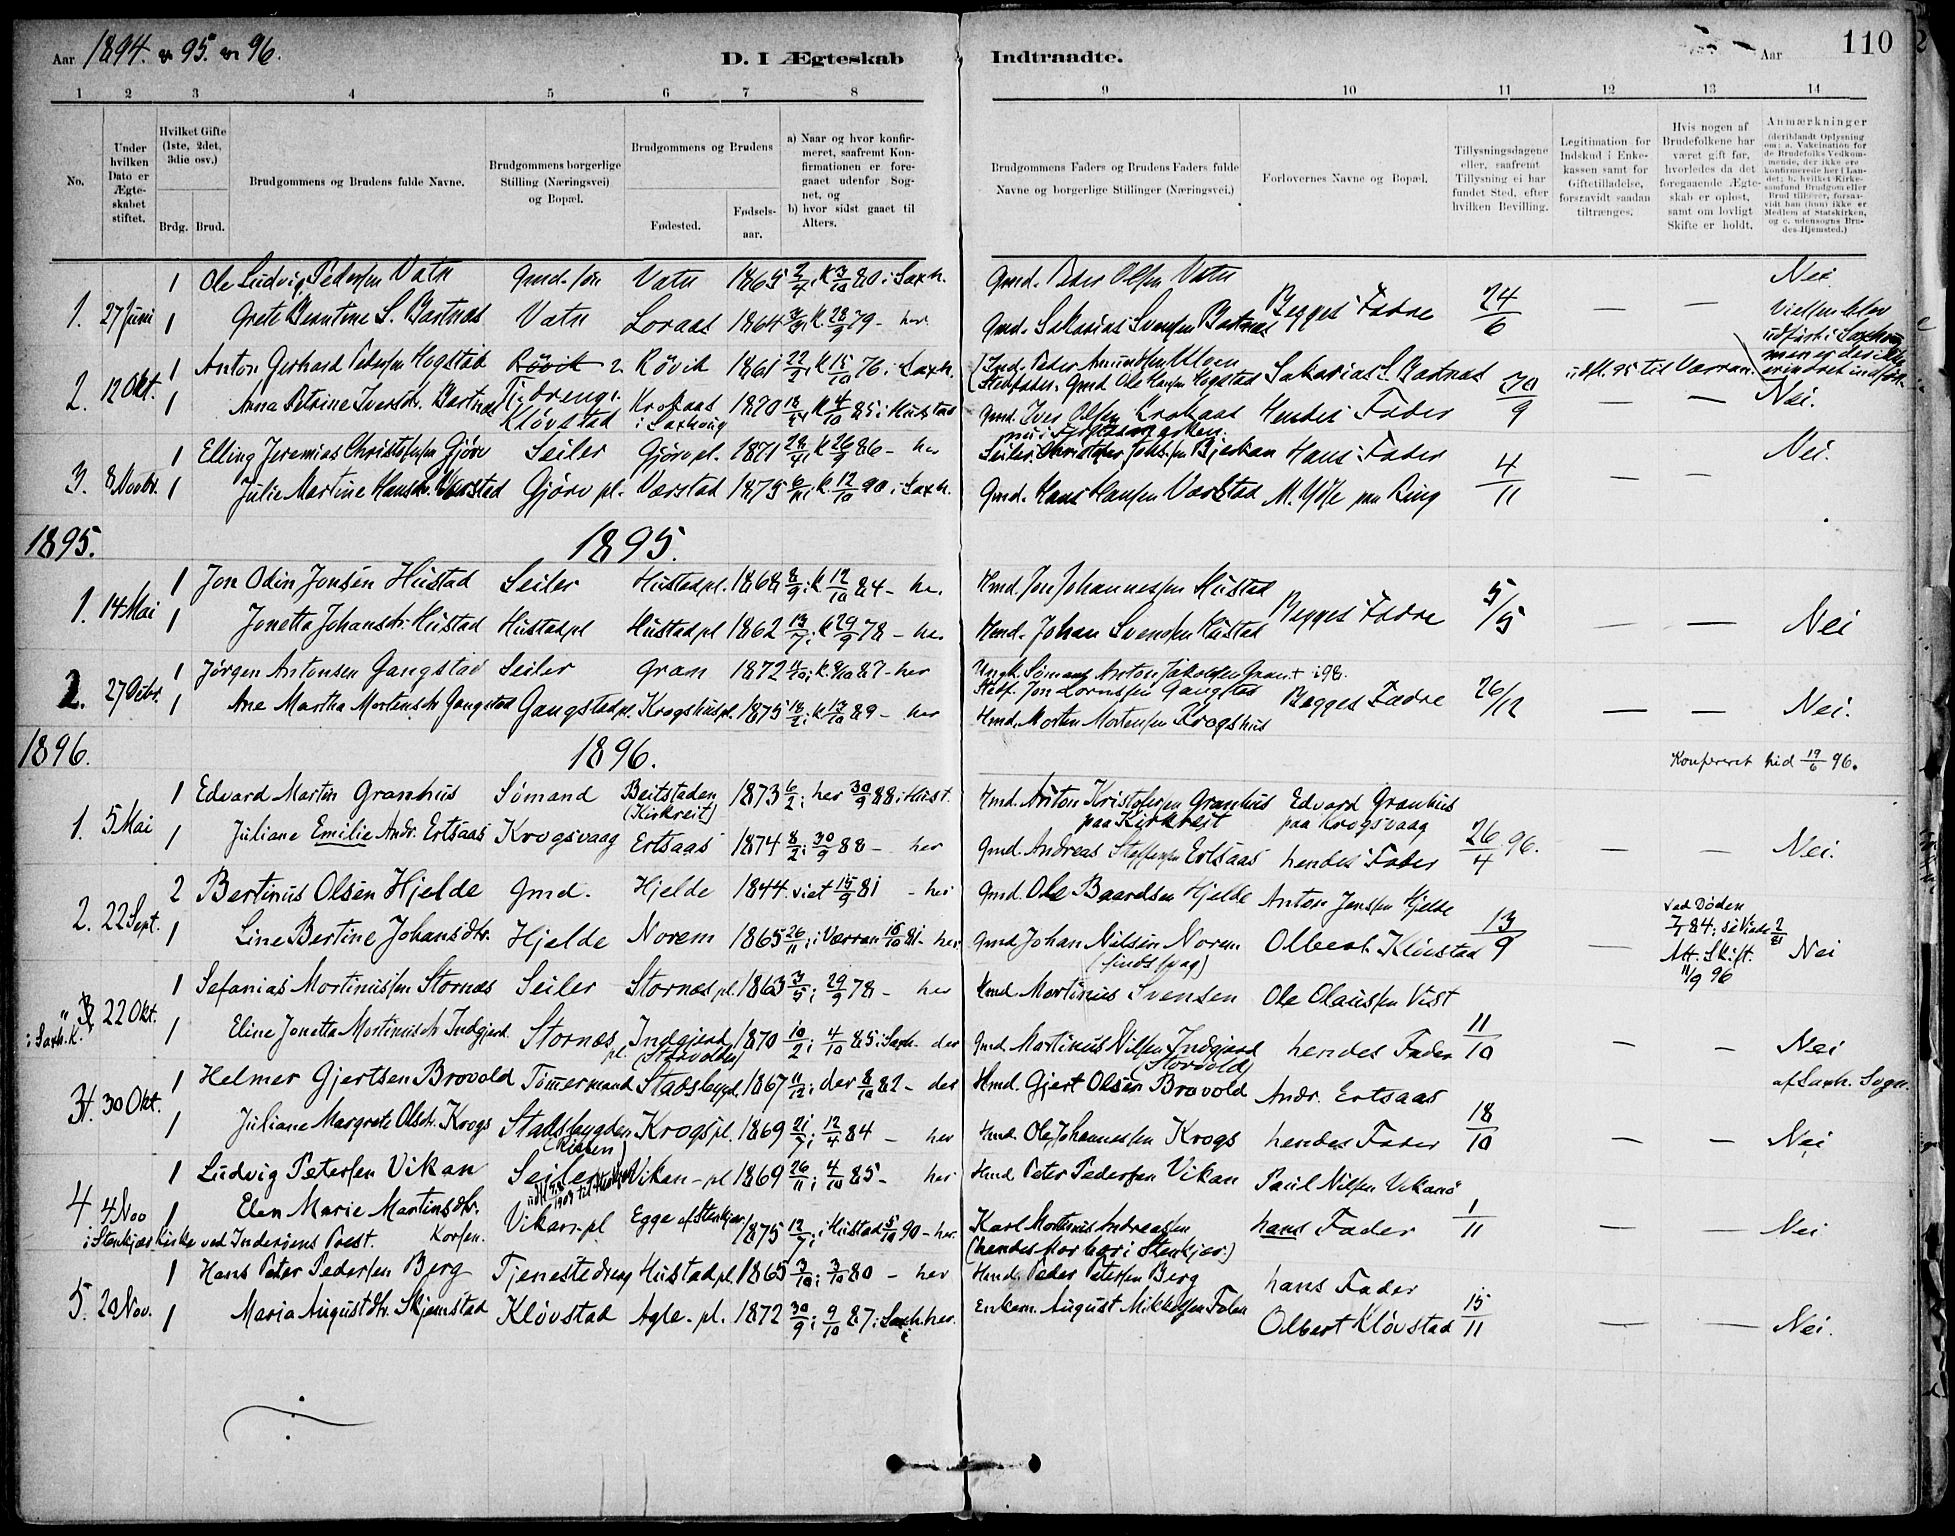 Aar 1894. 95. 96.
D. I Ægteskab Indtraadte.
Aar
110
1 2 3 4 5 6 7 8 9 10 11 12 13 14
No.
Under hvilken Dato er Ægteskabet stiftet.
Hvilket Gifte (1ste, 2det, 3die osv.)
Brdg. Brud.
Brudgommens og Brudens fulde Navne.
Brudgommens borgerlige Stilling (Næringsvei) og Bopæl.
Brudgommens og Brudens
Fødested.
Fødselsaar.
a) Naar og hvor konfirmeret, saafremt Konfirmationen er foregaaet udenfor Sognet, og
b) hvor sidst gaaet til Alters.
Brudgommens Faders og Brudens Faders fulde Navne og borgerlige Stillinger (Næringsvei.)
Forlovernes Navne og Bopæl.
Tillysningsdagene eller, saafremt Tillysning ei har fundet Sted, efter hvilken Bevilling.
Legitimation for Indskud i Enkekassen samt for Giftetilladelse, forsaavidt saadan tiltrænges.
Hvis nogen af Brudefolkene har været gift før, hvorledes da det foregaaende Ægteskab er opløst, samt om lovligt Skifte er holdt.
Anmærkninger (deriblandt Oplysning om: a. Vakcination for de Brudefolks Vedkommende, der ikke ere konfirmerede her i Landet; b. hvilket Kirkesamfund Brudgom eller Brud tilhører, forsaavidt han (hun) ikke er Medlem af Statskirken, og c. udensogns Brudes Hjemsted.)
1 Ole Ludvig Pedersen Vatn Gmd. søn Vatn 1865 K 3/10 80 i Saxh. Gmd. Peder Olsen Vatn Nei
1. 27 Juni 1 Grete S. Bartnas Vatn Loraas 1864 K 28/9 79 - her Gmd. Sakarias Svensen Bartnas Begges Fædre 24/6 — —
1 Anton Gerhard Pedersen Hogstad Røvik 1861 22/2 K 15/10 76 i Saxh. Gmd. Ole Hansen Hogstad Sakarias S. Bartnas
2. 12 Okt. 1 Anna Petrine Iversdr. Bartnas Tj.dreng Kløvstad Krokaas i Saxhaug 1870 K 4/10 85 i Hustad Gmd. Iver Olsen Krokaas Hendes Fader 30/9 — — Nei.
1 Elling Jeremias Christofersen Gjørv Seiler Gjørv pl. 1871 28/4 K 26/9 86 - her Seiler Christofer Bjerkan Hans Fader Nei.
3. 8 Novbr. 1 Julie Martine Hansdr. Værstad Gjørv pl. Værstad 1875 6/11 K 12/10 90 i Saxh. Gmd. Hans Hansen Værstad 4/11 — —
1895. 1895.
1 Jon Odin Jonsen Hustad Seiler Hustad pl. 1868 8/9 K 12/10 84 - her Hmd. Jon Johannessen Hustad
1. 14 Mai 1 Jonetta Johansdr. Hustad Hustad pl Hustad pl 1862 13/7 K 29/9 78 - her Hmd. Johan Svendsen Hustad Begges Fædre 5/5 — — Nei
1 Jørgen Antonsen Gangstad Seiler Gran 1872 87 - her Ungk. Sømand Anton Jakobsen Gran
2. 27 Debr. 1 Ane Martha Mortensdr Gangstad Gangstad pl. Krogshus pl. 1875 K 13/10 89 - her Hmd. Morten Mortensen Krogshus Begges Fædre 26/12 — — Nei.
1896. 1896.
Konfereret hid 19/6 96.
1 Edvard Martin Granhus Sømand Beitstaden (Kirkreit) 1873 6/2 her 30/9 88 i Hust. Hmd. Anton Kristofersen Granhus paa Kirkreit Edvard Granhus paa Krogsvaag
1. 5 Mai 1 Juliane Emilie Andr. Ertsaas Krogsvaag Ertsaas 1874 8/2 30/9 88 - her Gmd. Andreas Steffensen Ertsaas hendes Fader 26/4 96. — — Nei.
2 Bertinus Olsen Hjelde Gmd. Hjelde 1844 viet 15/9 81 - her Gmd. Ole Baardsen Hjelde Anton Jensen Hjelde ved Døden
2. 22 Sept. 1 Line Bertine Johansdtr. Hjelde Norem 1865 26/11 i Værran 16/10 81 - her Gmd Johan Nilsen Norem Olbert Kløvstad 13/9 — Att. Skift. 11/9 96 Nei
1 Sefanias Martinussen Stornæs Seiler Stornæs pl. 1863 3/5 29/9 78 - her Hmd. Martinus Svensen Ole Olaussen Vist
3. 22 Okt. i Saxh. K. 1 Eline Jonetta Martinusdr Indgjerd Stornæs pl. Indgjerd 1870 10/2 4/10 85 i Saxh. der Gmd. Martinus Nilsen Indgjerd (Storvold) hendes Fader 11/10 — — Nei
1 Helmer Gjertsen Brovold Tømmermand Stadsbygd 1867 11/12 der 8/10 82 - der Hmd. Gjert Olsen Brovold Andr. Ertsaas af Saxh. Sogn.
3. 30 Okt. 1 Juliane Margrete Olsdr. Krogs Stadsbygden (Rissen) Krogs pl. 1869 21/7 12/4 84 - her Hmd. Ole Johannessen Krogs hendes Fader 18/10 — — Nei
1 Ludvig Petersen Vikan Seiler Vikan - pl 1869 26/11 4/10 85 - her Hmd Peter Pedersen Vikan Paul Nilsen Vikanø
4 4 Nov 1 Elen Marie Martinsdtr. Korsen. Vikan-pl Egge af Stenkjær 1875 12/7 i Hustad 5/10 90 - her Karl Martinus Andreassen hans Fader 1/11 — Nei
i Stenkjær Kirke ved Inderøens Præst. (hendes Morbror i Stenkjær.)
1 Hans Peter Pedersen Berg Tjenestedreng Hustad pl. 1865 3/10 3/10 80 - her Hmd. Peder Petersen Berg hans Fader
5. 20 Nov. 1 Maria Augustdtr. Skjemstad Kløvstad Agle - pl. 1872 30/9 9/10 87 i Saxh. her. Enkem. August Mikkelsen Olbert Kløvstad 15/11 — — Nei.